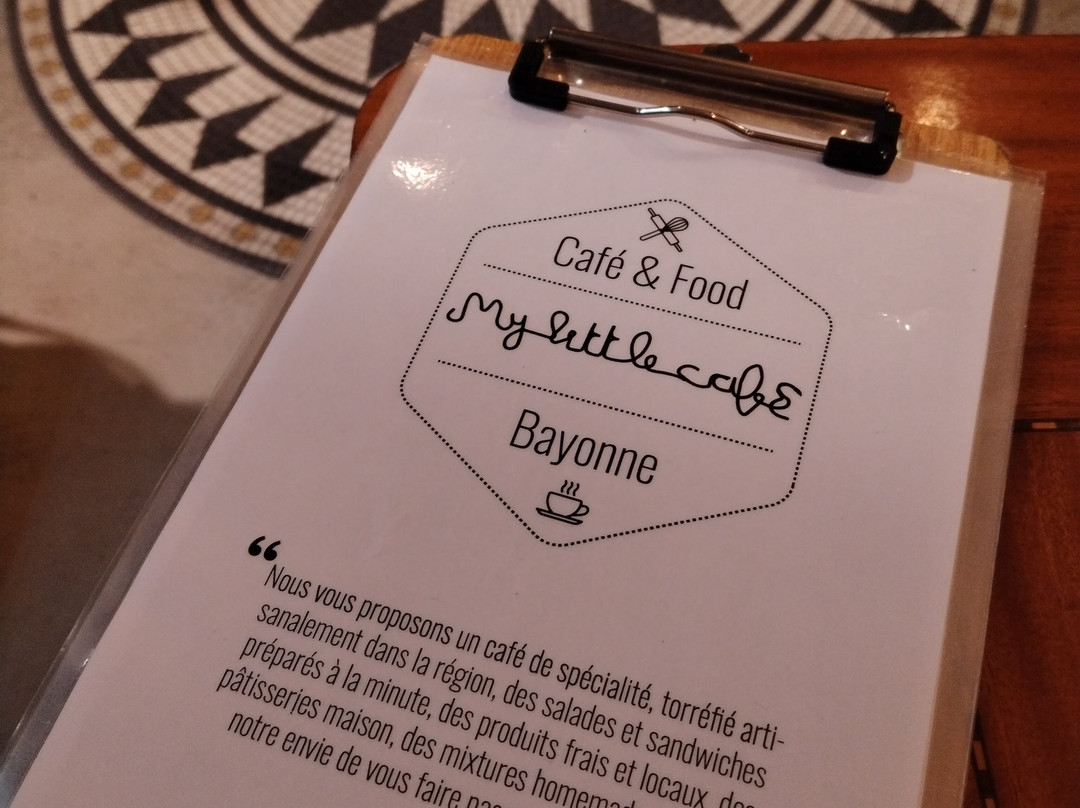 Café & Food
My little café
Bayonne
“
Nous vous proposons un café de spécialité, torréfié arti-
sanalement dans la région, des salades et sandwiches
préparés à la minute, des produits frais et locaux, des
pâtisseries maison, des mixtures
notre envie de vous faire